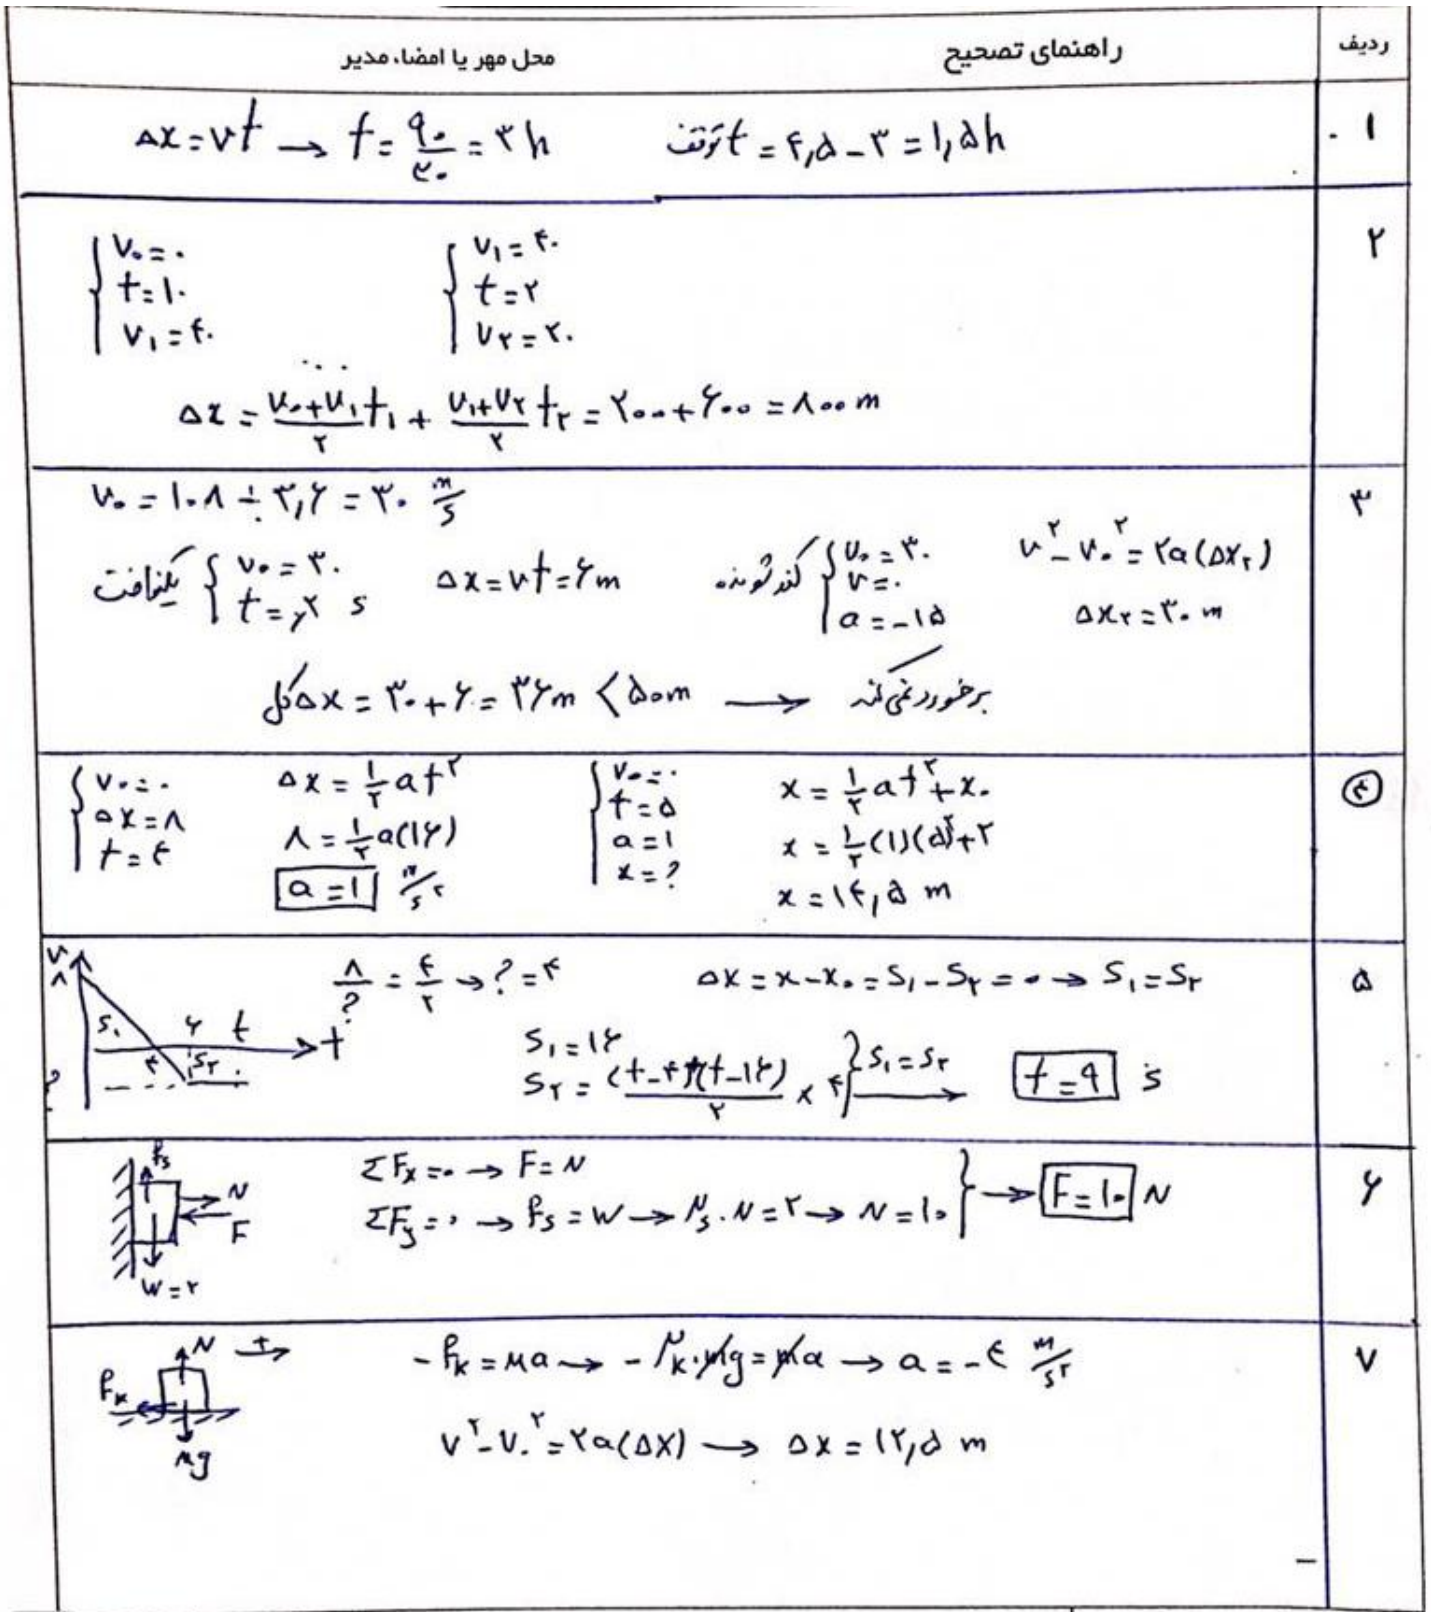 ردیف
راهنمای تصحیح
محل مهر یا امضاء مدیر
۱
Δx = vt → t = ۹۰/۳۰ = ۳ h
t توقف = ۴,۵ - ۳ = ۱,۵ h
۲
v₀ = ۰
t = ۱۰
v₁ = ۴۰
v₁ = ۴۰
t = ۲
v₂ = ۲۰
Δx = (v₀+v₁)/۲ t₁ + (v₁+v₂)/۲ t₂ = ۲۰۰ + ۶۰۰ = ۸۰۰ m
۳
v₀ = ۱۰۸ ÷ ۳,۶ = ۳۰ m/s
یکنواخت { v₀ = ۳۰
t = ,۲ s
Δx = vt = ۶ m
کندشونده { v₀ = ۳۰
v = ۰
a = -۱۵
v² - v₀² = ۲a(Δx₂)
Δx₂ = ۳۰ m
Δx کل = ۳۰ + ۶ = ۳۶ m < ۵۰ m → برخورد نمی‌کند
۴
v₀ = ۰
Δx = ۸
t = ۴
Δx = ½ at²
۸ = ½ a(۱۶)
a = ۱ m/s²
v₀ = ۰
t = ۵
a = ۱
x = ?
x = ½ at² + x₀
x = ½ (۱)(۵)² + ۲
x = ۱۴,۵ m
۵
v
۸
S₁
۶ t
t
۴
S₂
?
۸/? = ۴/۲ → ? = ۴
Δx = x - x₀ = S₁ - S₂ = ۰ → S₁ = S₂
S₁ = ۱۶
S₁ = S₂
t = ۹ s
۶
fs
N
F
W = ۲
ΣFx = ۰ → F = N
ΣFy = ۰ → fs = W → μs . N = ۲ → N = ۱۰
→ F = ۱۰ N
۷
N +
fk
mg
-fk = ma → -μk.mg = ma → a = -۴ m/s²
v² - v₀² = ۲a(Δx) → Δx = ۱۲,۵ m